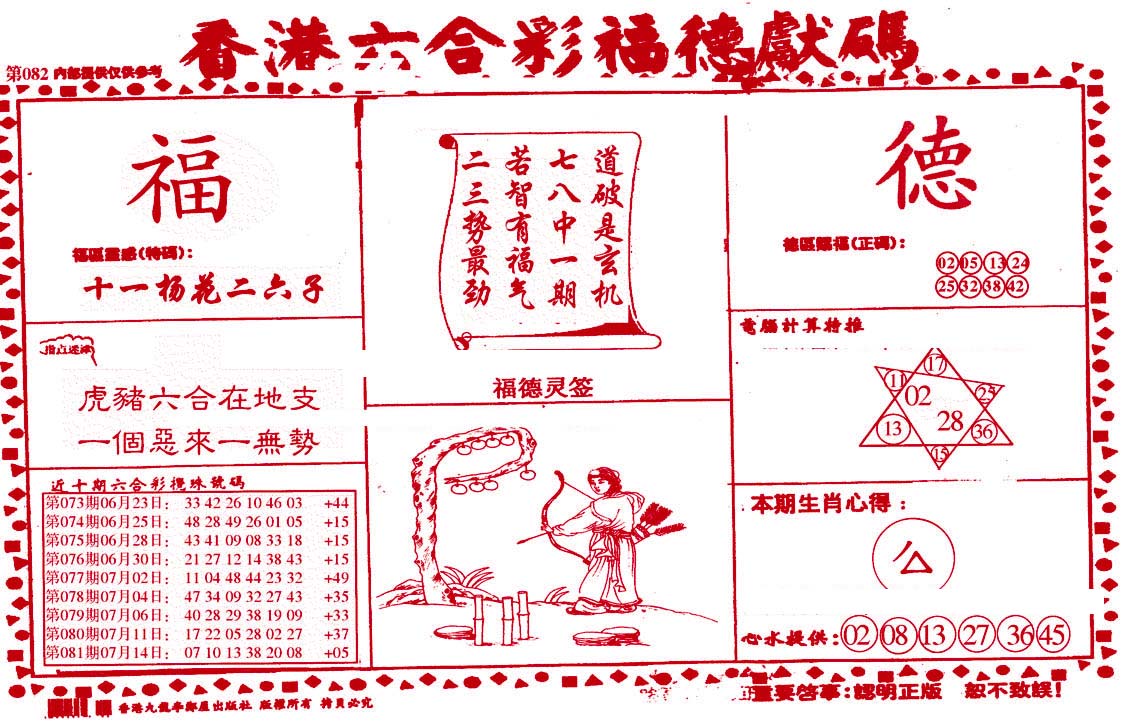 香港六合彩福德獻碼
第082 內部提供仅供参考
福
福區靈感(特碼):
十一杨花二六子
指点迷津
虎豬六合在地支
一個惡來一無勢
近十期六合彩攪珠號碼
第073期06月23日: 33 42 26 10 46 03 +44
第074期06月25日: 48 28 49 26 01 05 +15
第075期06月28日: 43 41 09 08 33 18 +15
第076期06月30日: 21 27 12 14 38 43 +15
第077期07月02日: 11 04 48 44 23 32 +49
第078期07月04日: 47 34 09 32 27 43 +35
第079期07月06日: 40 28 29 38 19 09 +33
第080期07月11日: 17 22 05 28 02 27 +37
第081期07月14日: 07 10 13 38 20 08 +05
道破是玄机
七八中一期
若智有福气
二三势最劲
福德灵签
德
德區賜福(正碼):
02 05 13 24
25 32 38 42
電腦計算特推
17
11 02 25
13 28 36
15
本期生肖心得:
心水提供: 02 08 13 27 36 45
版權所有 拷貝必究
重要啓事:認明正版 恕不致誤!